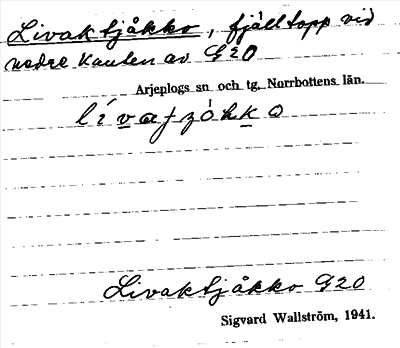 Livaktjåkko, fjälltopp vid
nedre kanten av G20
Arjeplogs sn och tg, Norrbottens län.
Livaktjåkko G20
Sigvard Wallström, 1941.